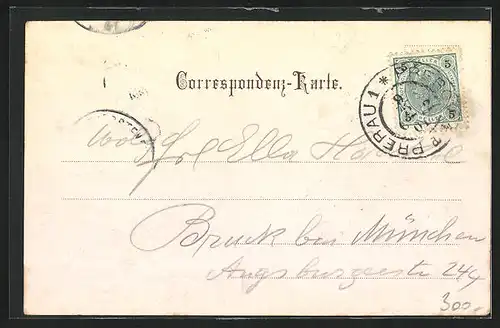 Correspondenz-Karte.
5
5
PRERAU 1 *
Wohl
Frl Ella
Bruck bei München
Augsburgerstr 244
300.